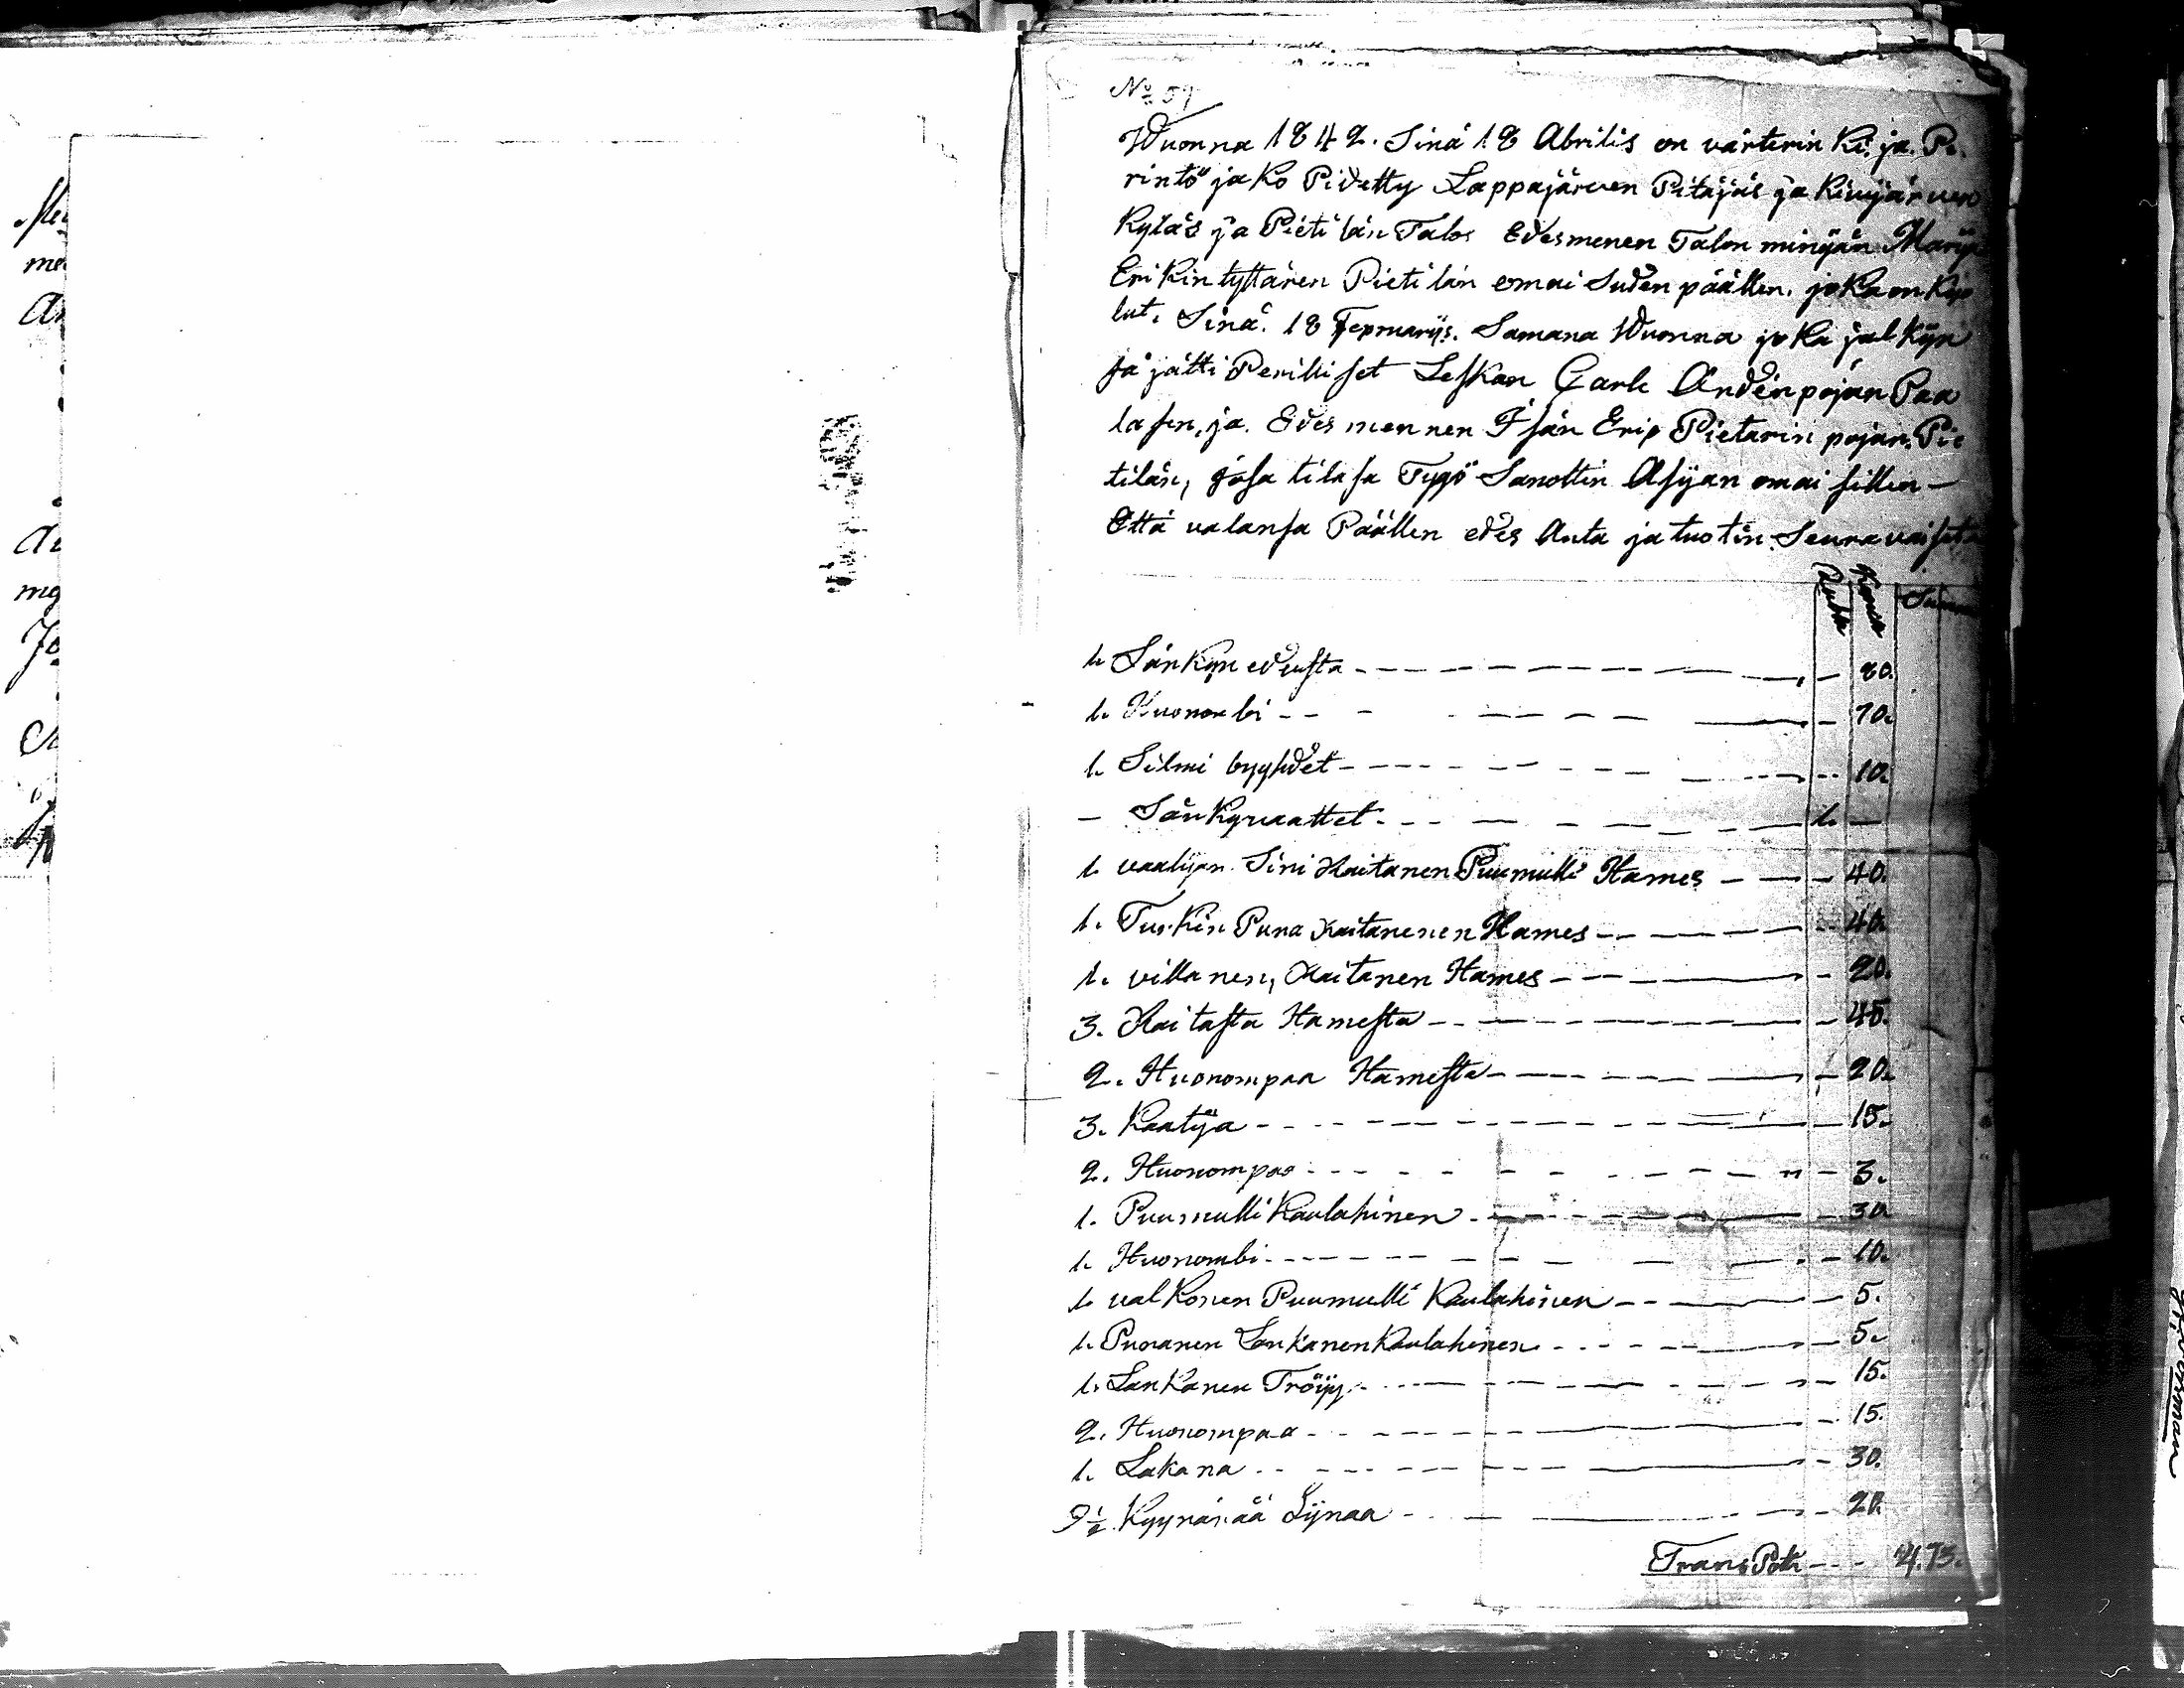 No 59
Wuonna 1842. Sinä 18 Abrilis on värterin Ki. ja. Pe.
rintö jako Pidetty Lappajärwen Pitäjäs ja Kiwijärwen
Kyläs ja Pietilän Talos Edesmenen Talon minijän Marija
Erikin tyttären Pietilän omaisuden päällen. joka on kuo
lut. Sinä. 18 Fepmarijs. Samana Wuonna joka jälkijn
sä jätti Perilliset Lesken Carle Andenpojan Paa
lasen, ja. Edesmennen Isän Erip Pietarin pojan. Pie
tilän, josa tilasa Tygö Sanottin Asijan omaisillen –
Että valansa Päällen edes Anta ja tuotin. Seuravaiseta
Rubla Summa
1. Sänkyn edusta – – – 80.
1. Huonombi – – – 70.
1. Silmi byyhdet – – – 10.
– Sänkyvaattet – – – 1. –
1. vaalijan Sini Kaitanen Puumulli Hames – – – 40.
1. Turkin Puna Kaitanenen Hames – – – 40.
1. villanen, Kaitanen Hames – – – 20.
3. Kaitasta Hamesta – – – 45.
2. Huonompaa Hamesta – – – 20.
3. Kaatija – – – 15.
2. Huonompaa – – – 3.
1. Puumulli Kaulahinen – – – 30.
1. Huonombi – – – 10.
1. valkonen Puumulli Kaulahinen – – – 5.
1. Punanen Lankanen Kaulahinen – – – 5.
1. Lankanen Tröijy – – – 15.
2. Huonompaa – – – 15.
1. Lakana – – – 30.
9½ Kyynärää Lijnaa – – – 20.
TransPort – – – 4.73.